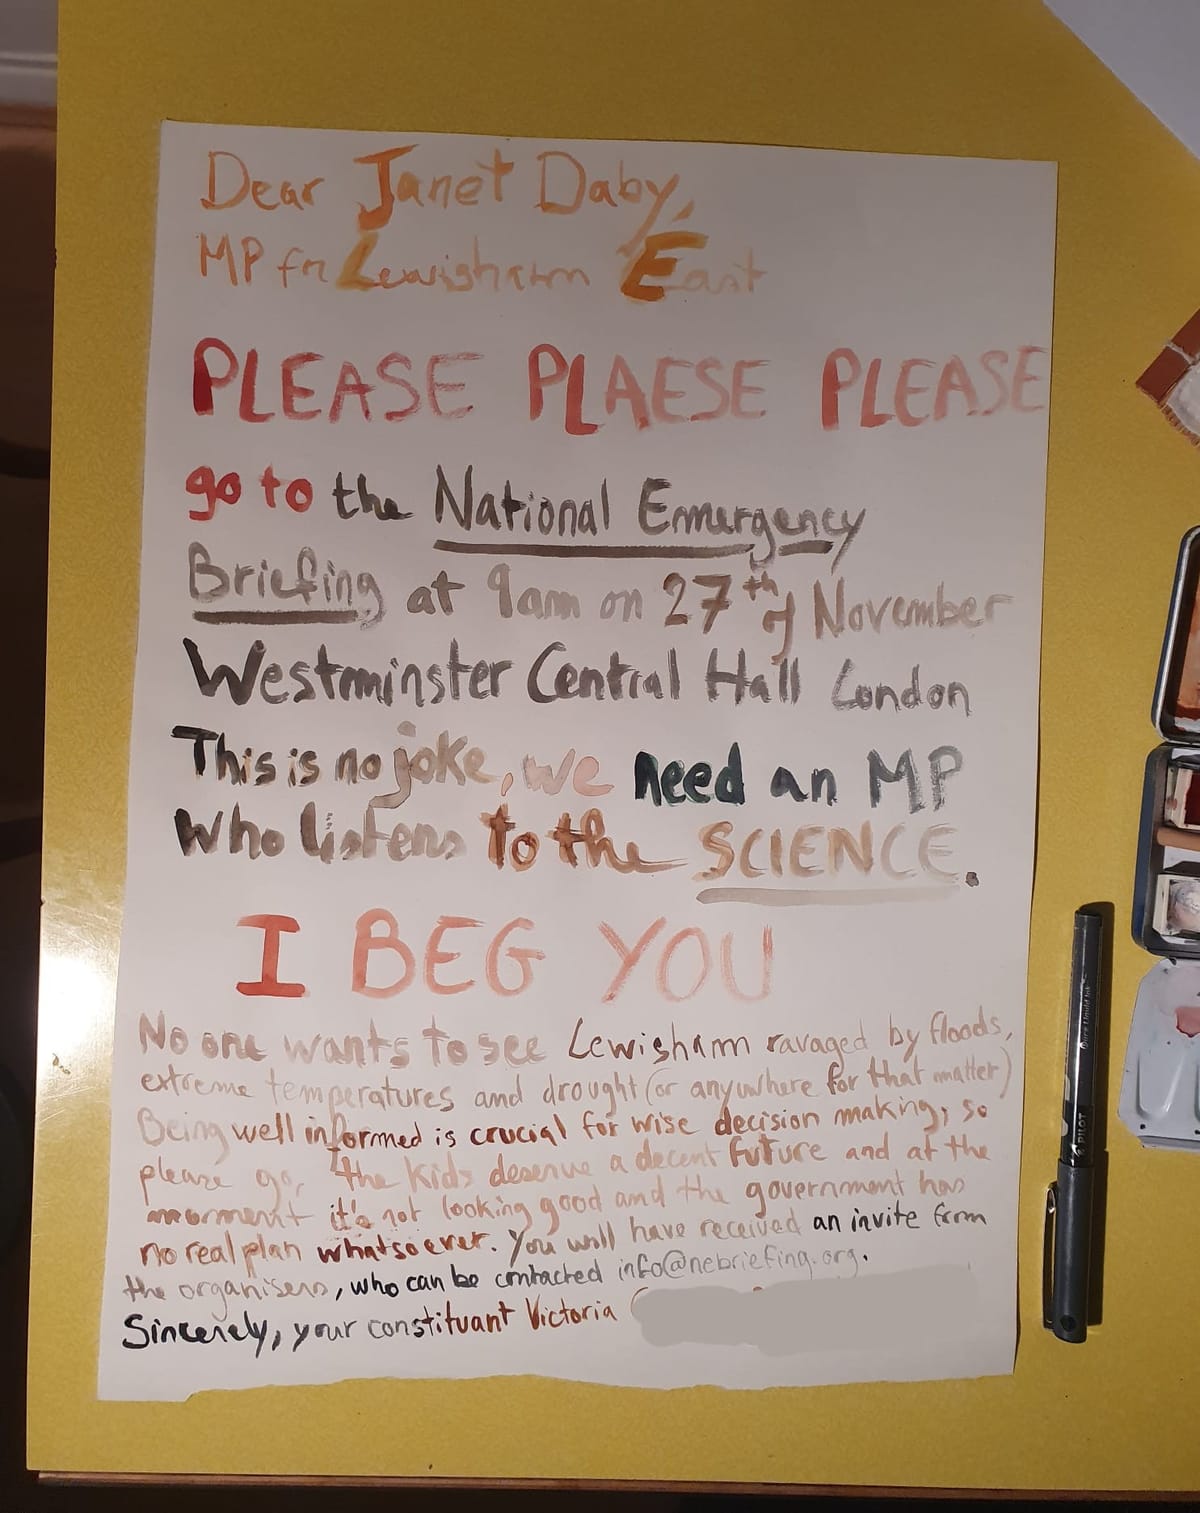 Dear Janet Daby,
MP for Lewisham East
PLEASE PLAESE PLEASE
go to the National Emergency
Briefing at 9am on 27th of November
Westminster Central Hall London
This is no joke, we need an MP
who listens to the SCIENCE.
I BEG YOU
No one wants to see Lewisham ravaged by floods,
extreme temperatures and drought (or anywhere for that matter)
Being well informed is crucial for wise decision making, so
please go, the kids deserve a decent future and at the
moment it's not looking good and the government has
no real plan whatsoever. You will have received an invite from
the organisers, who can be contacted info@nebriefing.org.
Sincerely, your constituant Victoria (
PILOT